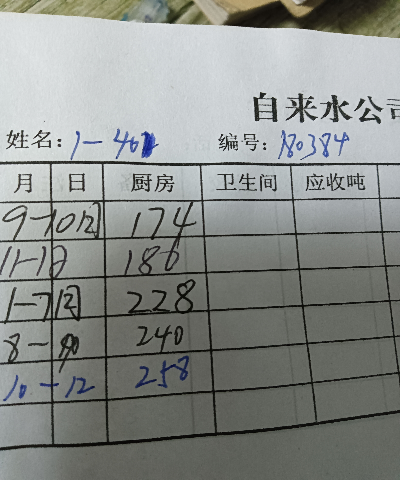 自来水公司
姓名: 1-401 编号: 180384
月 日 厨房 卫生间 应收吨
9-10月 174
11-12 186
1-7月 228
8- 240
10-12 258